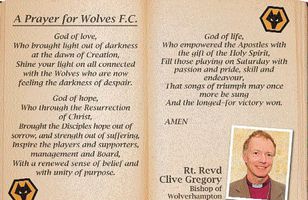 A Prayer for Wolves F.C.
God of love,
Who brought light out of darkness
at the dawn of Creation,
Shine your light on all connected
with the Wolves who are now
feeling the darkness of despair.
God of hope,
Who through the Resurrection
of Christ,
Brought the Disciples hope out of
sorrow, and strength out of suffering,
Inspire the players and supporters,
management and Board,
With a renewed sense of belief and
with unity of purpose.
God of life,
Who empowered the Apostles with
the gift of the Holy Spirit,
Fill those playing on Saturday with
passion and pride, skill and
endeavour,
That songs of triumph may once
more be sung
And the longed-for victory won.
AMEN
Rt. Revd
Clive Gregory
Bishop of
Wolverhampton